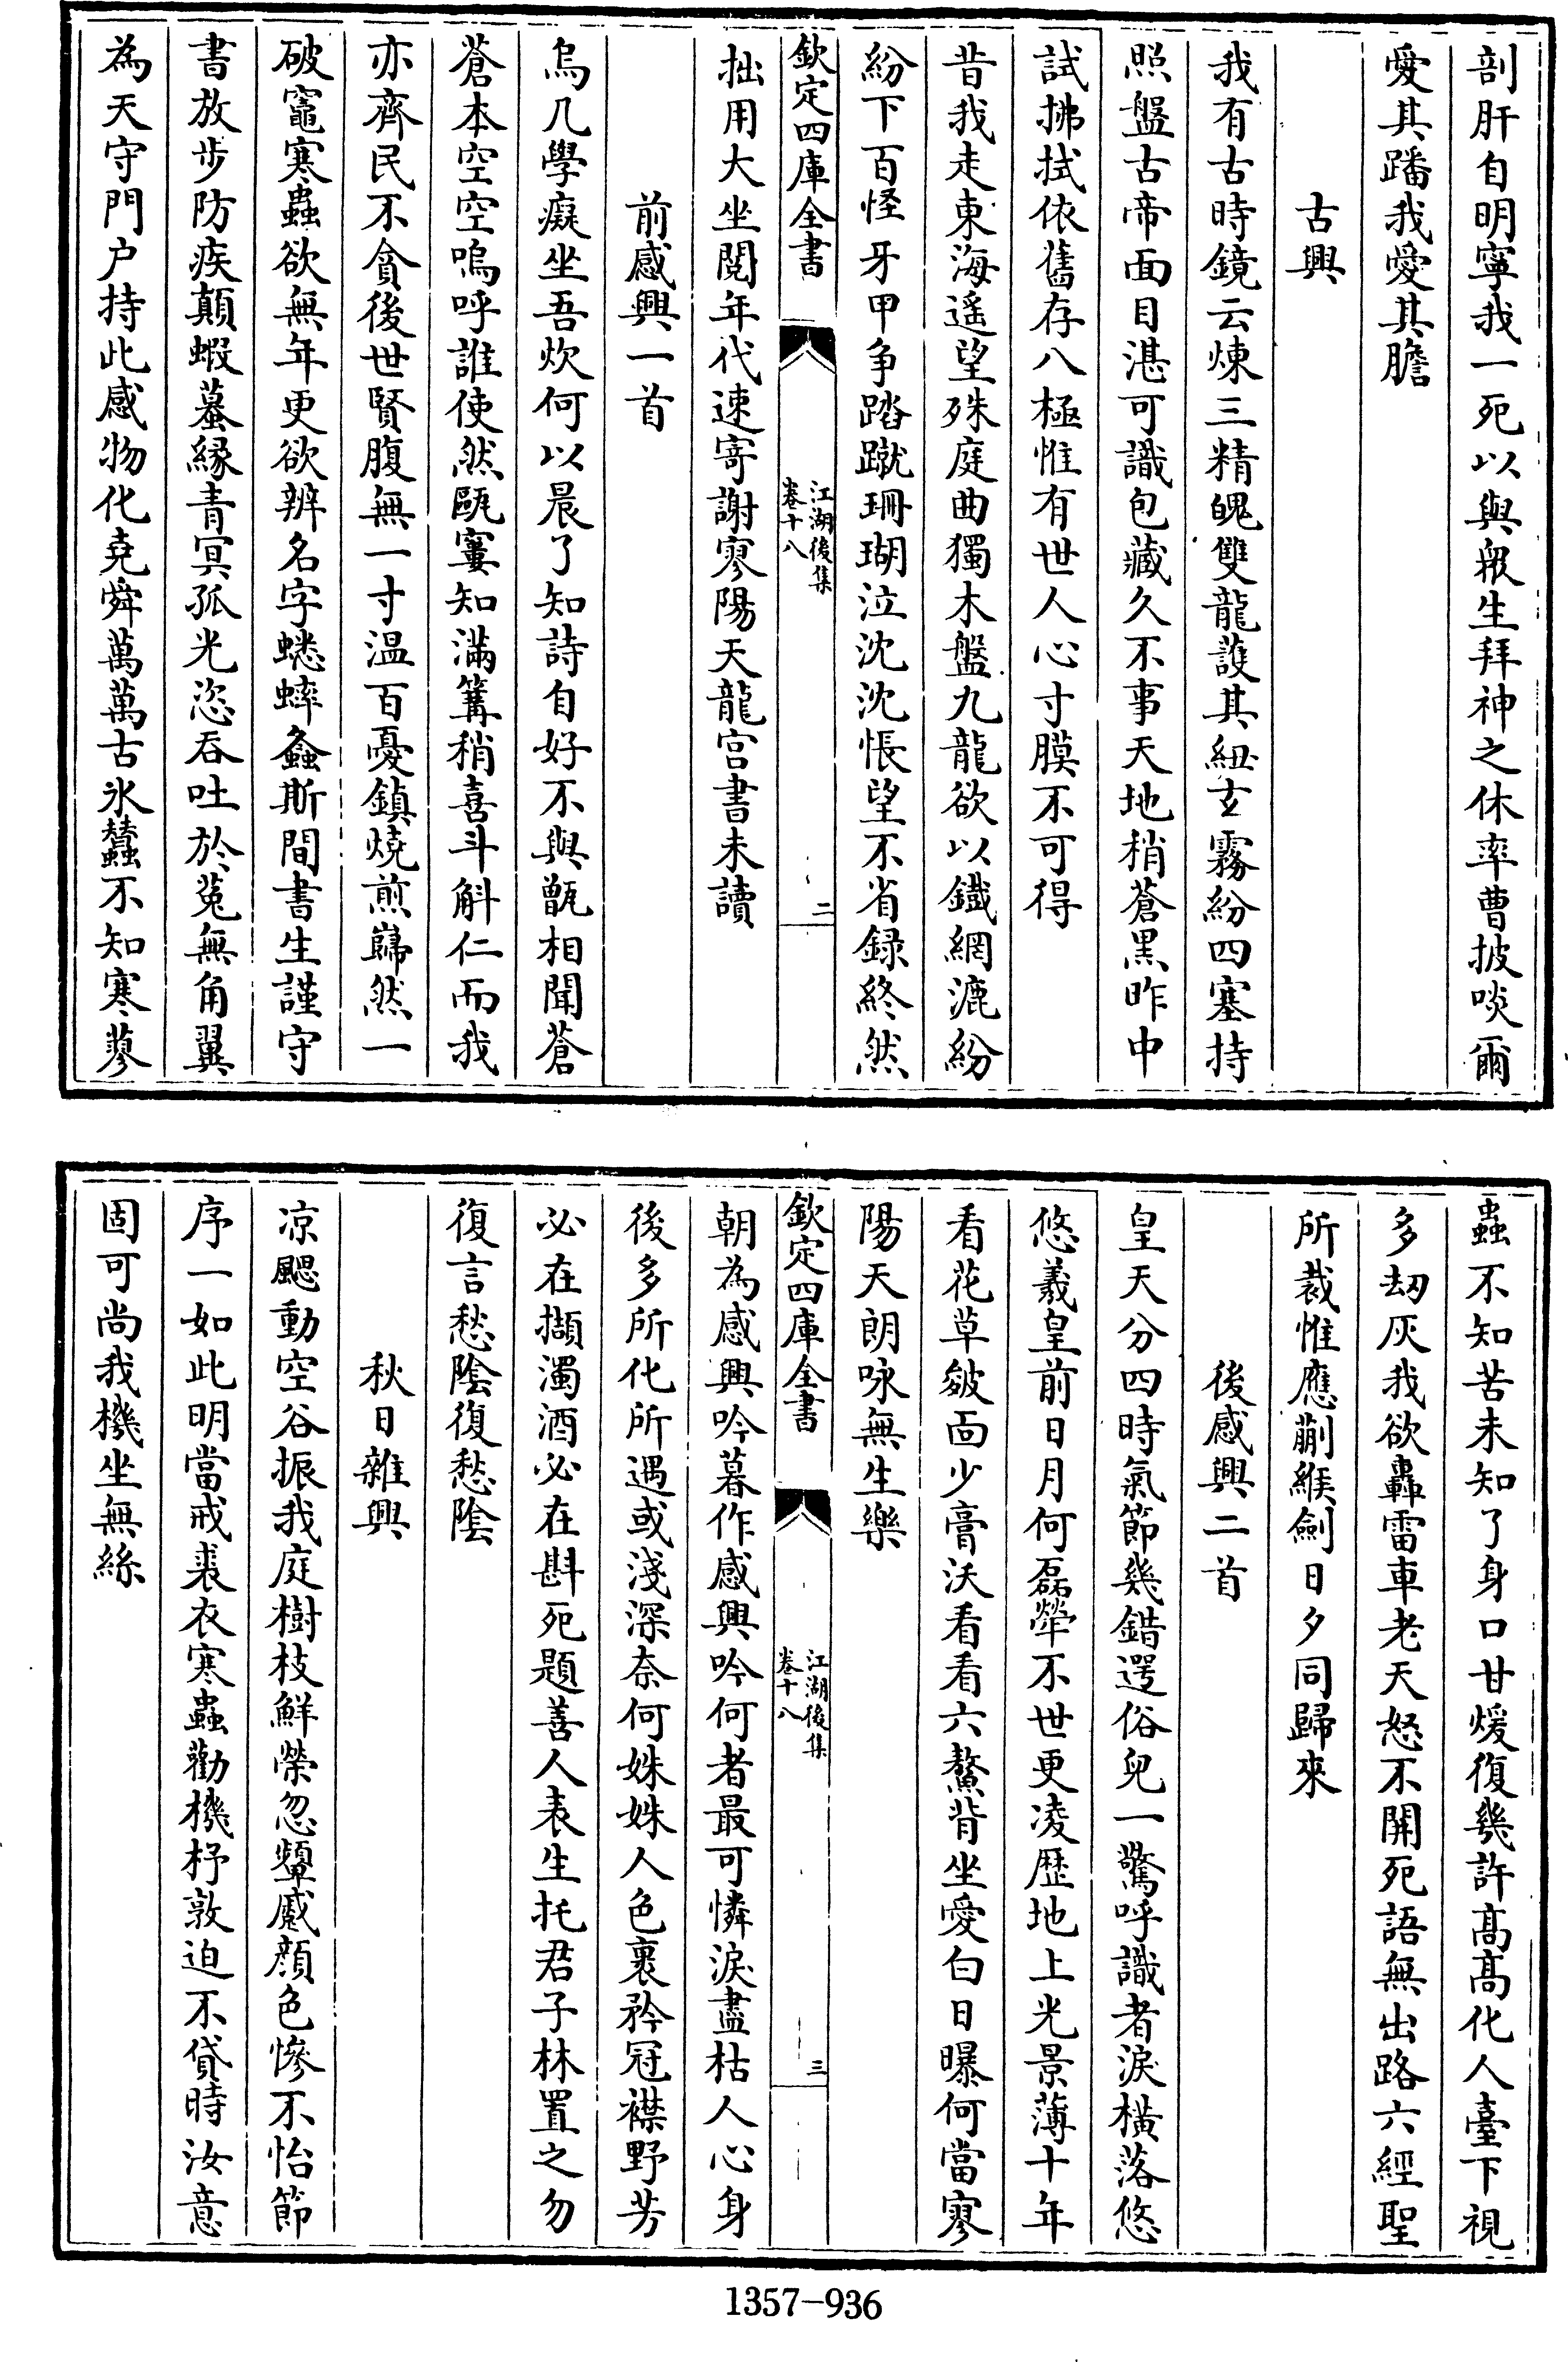 剖肝自明寧我一死以與衆生拜神之休率曹披啖爾
愛其蹯我愛其膽
古興
我有古時鏡云煉三精魄雙龍護其紐玄霧紛四塞持
照盤古帝面目湛可識包藏久不事天地稍蒼黑昨中
試拂拭依舊存八極惟有世人心寸膜不可得
昔我走東海遥望殊庭曲獨木盤九龍欲以鐵網漉紛
紛下百怪牙甲争踏蹴珊瑚泣沈沈悵望不省録終然
欽定四庫全書
江湖後集
卷十八
二
拙用大坐閲年代速寄謝寥陽天龍宫書未讀
前感興一首
烏几學癡坐吾炊何以晨了知詩自好不與甑相聞蒼
蒼本空空嗚呼誰使然甌窶知滿篝稍喜斗斛仁而我
亦齊民不貪後世賢腹無一寸温百憂鎮燒煎巋然一
破竈寒蟲欲無年更欲辨名字蟋蟀螽斯間書生謹守
書放步防疾顛蝦蟇縁青冥孤光恣吞吐於菟無角翼
為天守門户持此感物化堯舜萬萬古氷蠶不知寒蓼
蟲不知苦未知了身口甘煖復幾許髙髙化人臺下視
多刼灰我欲轟雷車老天怒不開死語無出路六經聖
所裁惟應蒯緱劍日夕同歸來
後感興二首
皇天分四時氣節幾錯遌俗兒一驚呼識者淚橫落悠
悠羲皇前日月何磊犖不世更凌歷地上光景薄十年
看花草皴面少膏沃看看六鰲背坐愛白日曝何當寥
陽天朗咏無生樂
欽定四庫全書
江湖後集
卷十八
三
朝為感興吟暮作感興吟何者最可憐淚盡枯人心身
後多所化所遇或淺深奈何姝姝人色裹矜冠襟野芳
必在擷濁酒必在斟死題善人表生托君子林置之勿
復言愁陰復愁陰
秋日雜興
凉颸動空谷振我庭樹枝鮮榮忽顰蹙顔色慘不怡節
序一如此明當戒裘衣寒蟲勸機杼敦迫不貸時汝意
固可尚我機坐無絲
1357-936